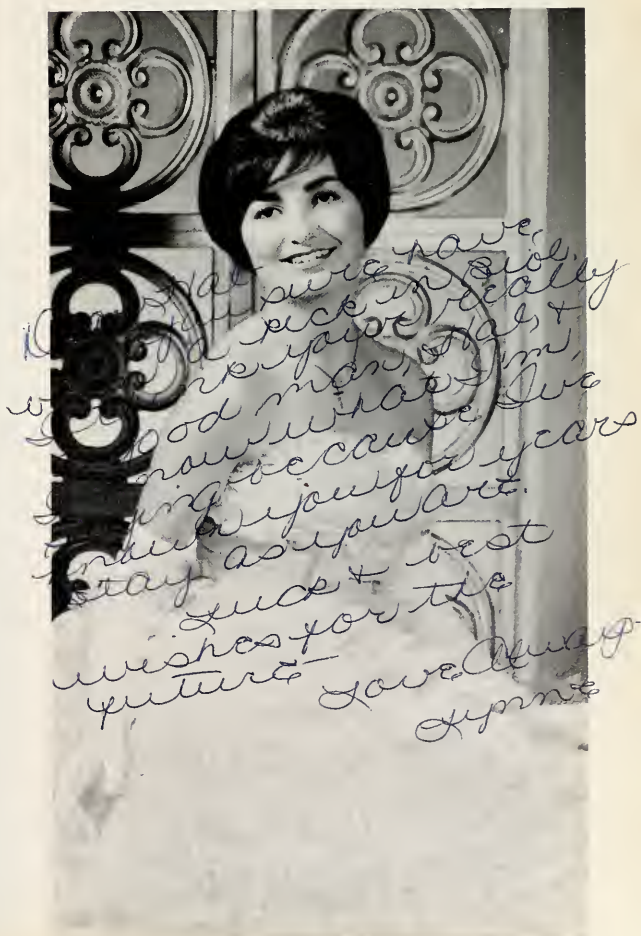 Dear Hal,
You sure have
a kick in Biol.
I think you're really
a good man, Hal, &
I know what I'm
saying because I've
known you for years
Stay as you are.
Luck & best
wishes for the
future
Love Always
Lynne